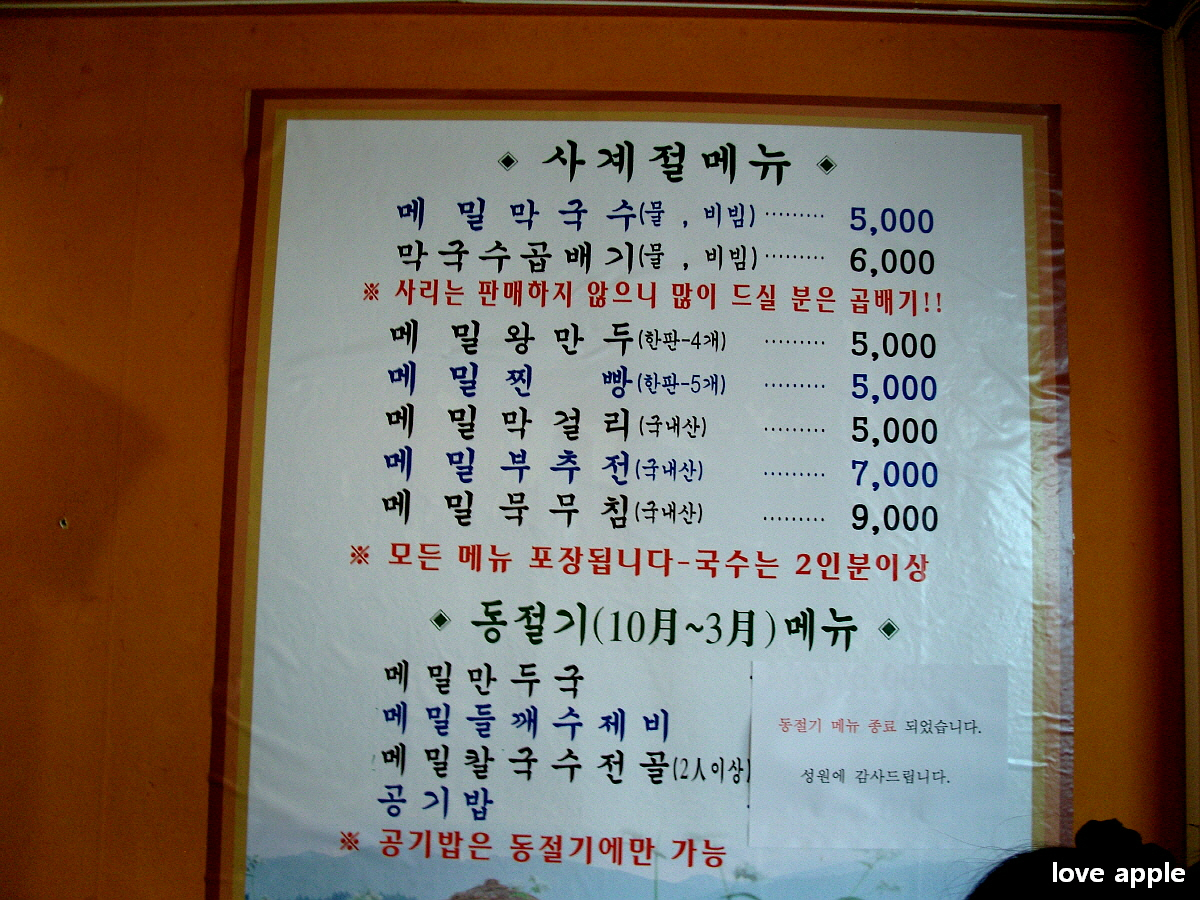 ◈ 사계절메뉴 ◈
메밀막국수(물 , 비빔) ········· 5,000
막국수곱배기(물 , 비빔) ········· 6,000
※ 사리는 판매하지 않으니 많이 드실 분은 곱배기!!
메밀왕만두(한판-4개) ········· 5,000
메밀찐빵(한판-5개) ········· 5,000
메밀막걸리(국내산) ········· 5,000
메밀부추전(국내산) ········· 7,000
메밀묵무침(국내산) ········· 9,000
※ 모든 메뉴 포장됩니다-국수는 2인분이상
◈ 동절기(10月~3月)메뉴 ◈
메밀만두국
메밀들깨수제비
메밀칼국수전골(2人이상)
공기밥
※ 공기밥은 동절기에만 가능
동절기 메뉴 종료 되었습니다.
성원에 감사드립니다.
love apple